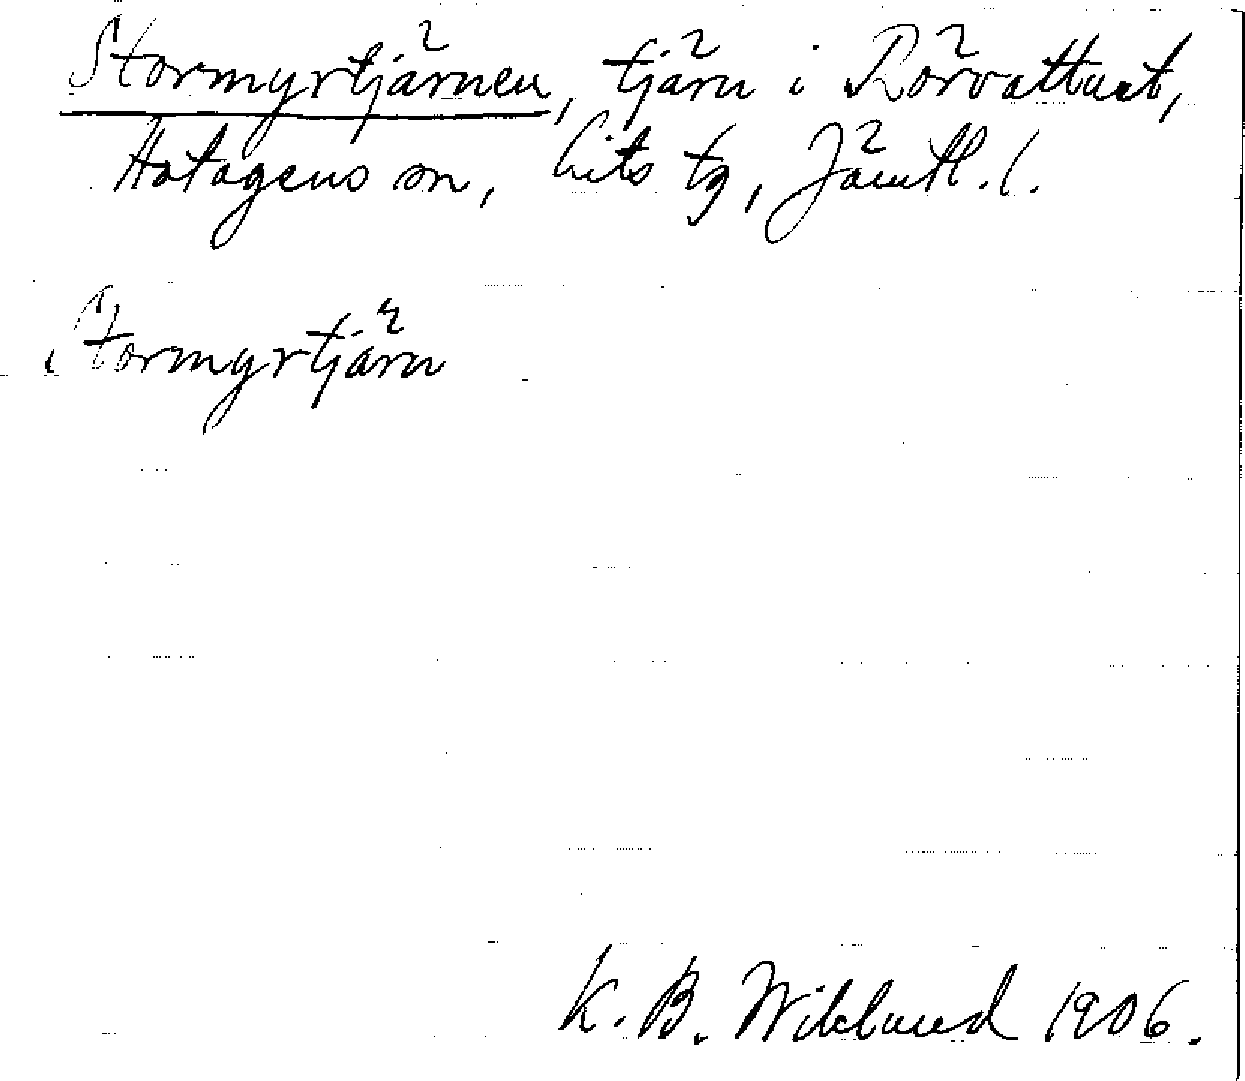 Stormyrtjärnen, tjärn i Rörvattnet,
Hotagens sn, Lits tg, Jämtl. l.
Stormyrtjärn
K. B. Wiklund 1906.